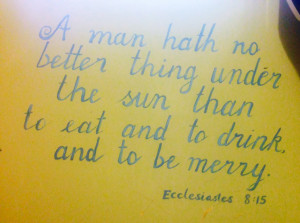 A man hath no
better thing under
the sun than
to eat and to drink,
and to be merry.
Ecclesiastes 8:15